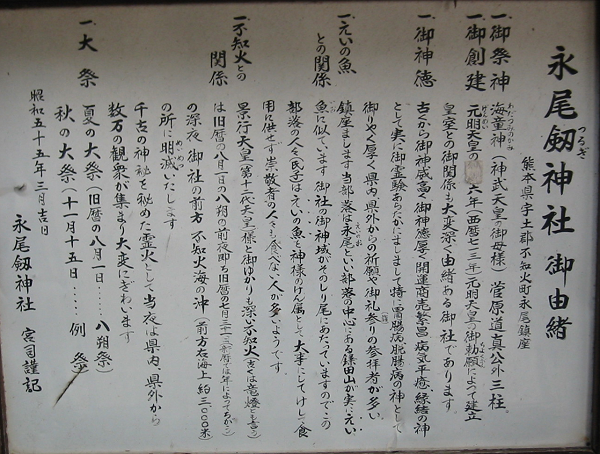 永尾剱神社 御由緒
つるぎ
熊本県宇土郡不知火町永尾鎮座
一、御祭神 海童神(神武天皇の御母様)菅原道真公外三柱。
わだつみのかみ
一、御創建 元明天皇の 六年(西暦七一三年)元明天皇の御勅願によって建立
げんめい
皇室との御関係も大変深く由緒ある御社であります。
一、御神徳 古くから御神威高く御神徳厚く開運商売繁昌病気平癒縁結の神
として実に御霊験あらたかにましまして特に胃腸病肛腸病の神として
御りやく厚く県内県外からの祈願や御礼参りの参拝者が多い
一、えいの魚との関係 鎮座まします当部落は永尾といい部落の中心にある鎌田山が実にえい
魚に似ています 御社の御神域がそのしり尾にあたっていますのでこの
部落の人々(氏子)はえいの魚と神様のけん属として大事にしてけして食
用に供せず崇敬者の人々も食べない人が多いようです。
一、不知火との関係 景行天皇(第十二代天皇)様と御ゆかりも深い不知火(古くは竜燈とも言う)
は旧暦の八月一日の八朔の前夜即ち旧暦の七月三十日(新暦では年によってちがう)
の深夜 御社の前方 不知火海の沖(前方右海上約三〇〇〇米)
の所に明滅いたします
めいめつ
千古の神秘を秘めた霊火として当夜は県内、県外から
数万の観衆が集まり大変にぎわいます
一、大祭 夏の大祭(旧暦の八月一日……八朔祭)
秋の大祭(十一月十五日……例祭)
昭和五十五年三月吉日
永尾剱神社 宮司謹記